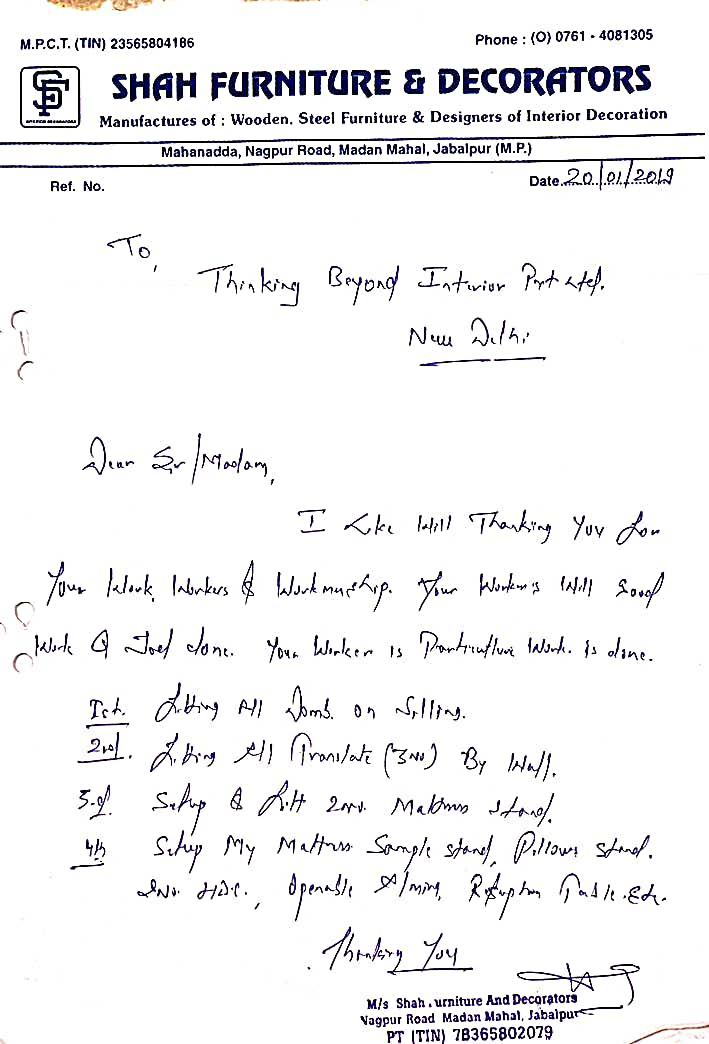 M.P.C.T. (TIN) 23565804186
Phone : (O) 0761 - 4081305
SHAH FURNITURE & DECORATORS
Manufactures of : Wooden. Steel Furniture & Designers of Interior Decoration
Mahanadda, Nagpur Road, Madan Mahal, Jabalpur (M.P.)
Ref. No.
Date. 20/01/2019
To,
Thinking Beyond Interior Pvt Ltd.
New Delhi
Dear Sir/Madam,
I Like Will Thanking You for
Your Work, Workers & Workmanship. Your Workers Will Good
Work & done. Your Worker is Work. is done.
Ist. fitting All on
2nd. fitting All Translate (3 No) By Wall.
3rd. Setup & fit 2 no. Mattress stand.
4th Setup My Mattress Sample stand, Pillows stand.
2 No. Openable Reception Table. Etc.
Thanking You
M/s Shah urniture And Decorators
Nagpur Road Madan Mahal, Jabalpur
PT (TIN) 78365802079